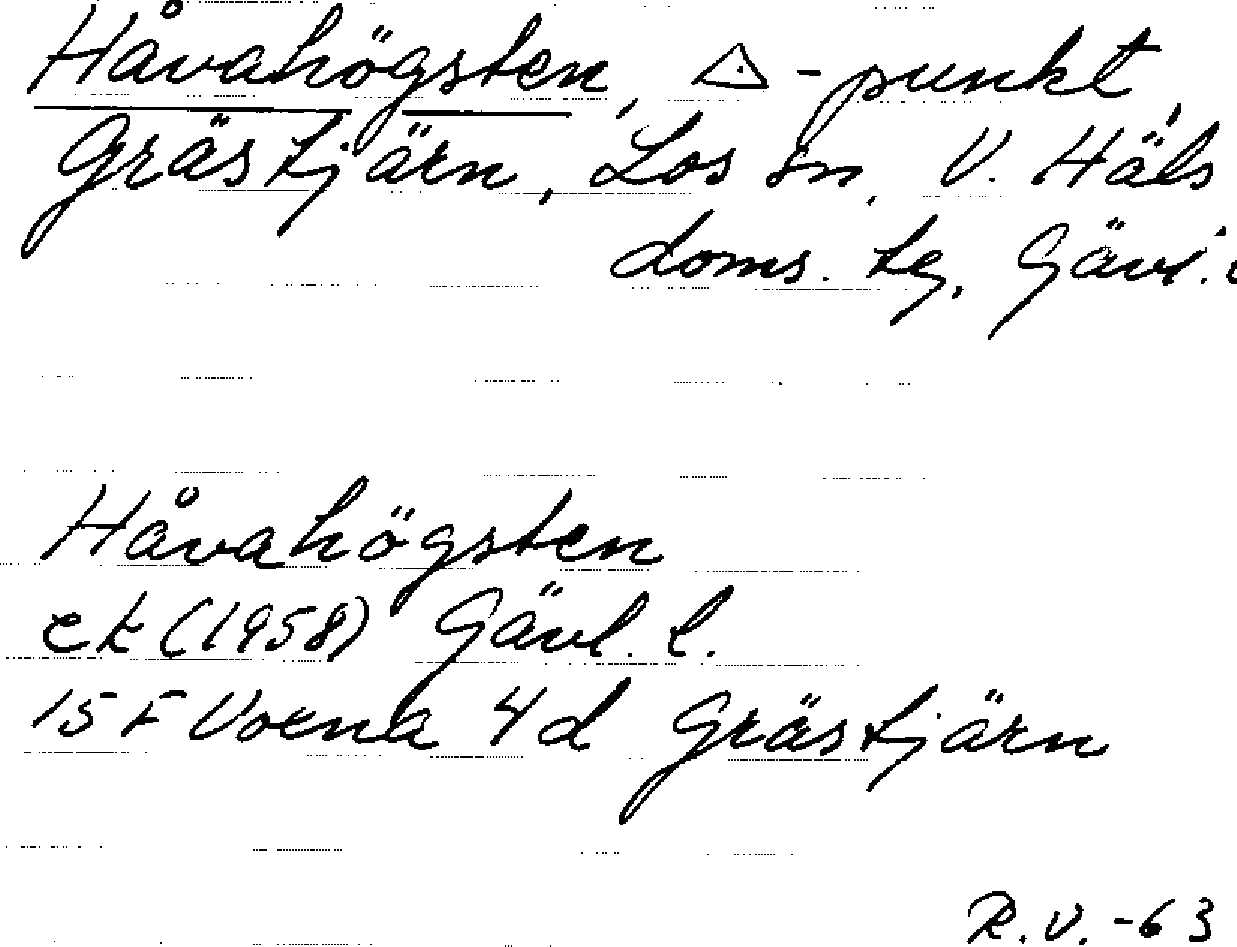 Håvahögsten, △-punkt,
Grästjärn, Los sn, V. Häls
doms. tg, Gävl. l
Håvahögsten
ek (1958) Gävl. l.
15 F Voxna 4 d Grästjärn
R.V. -63